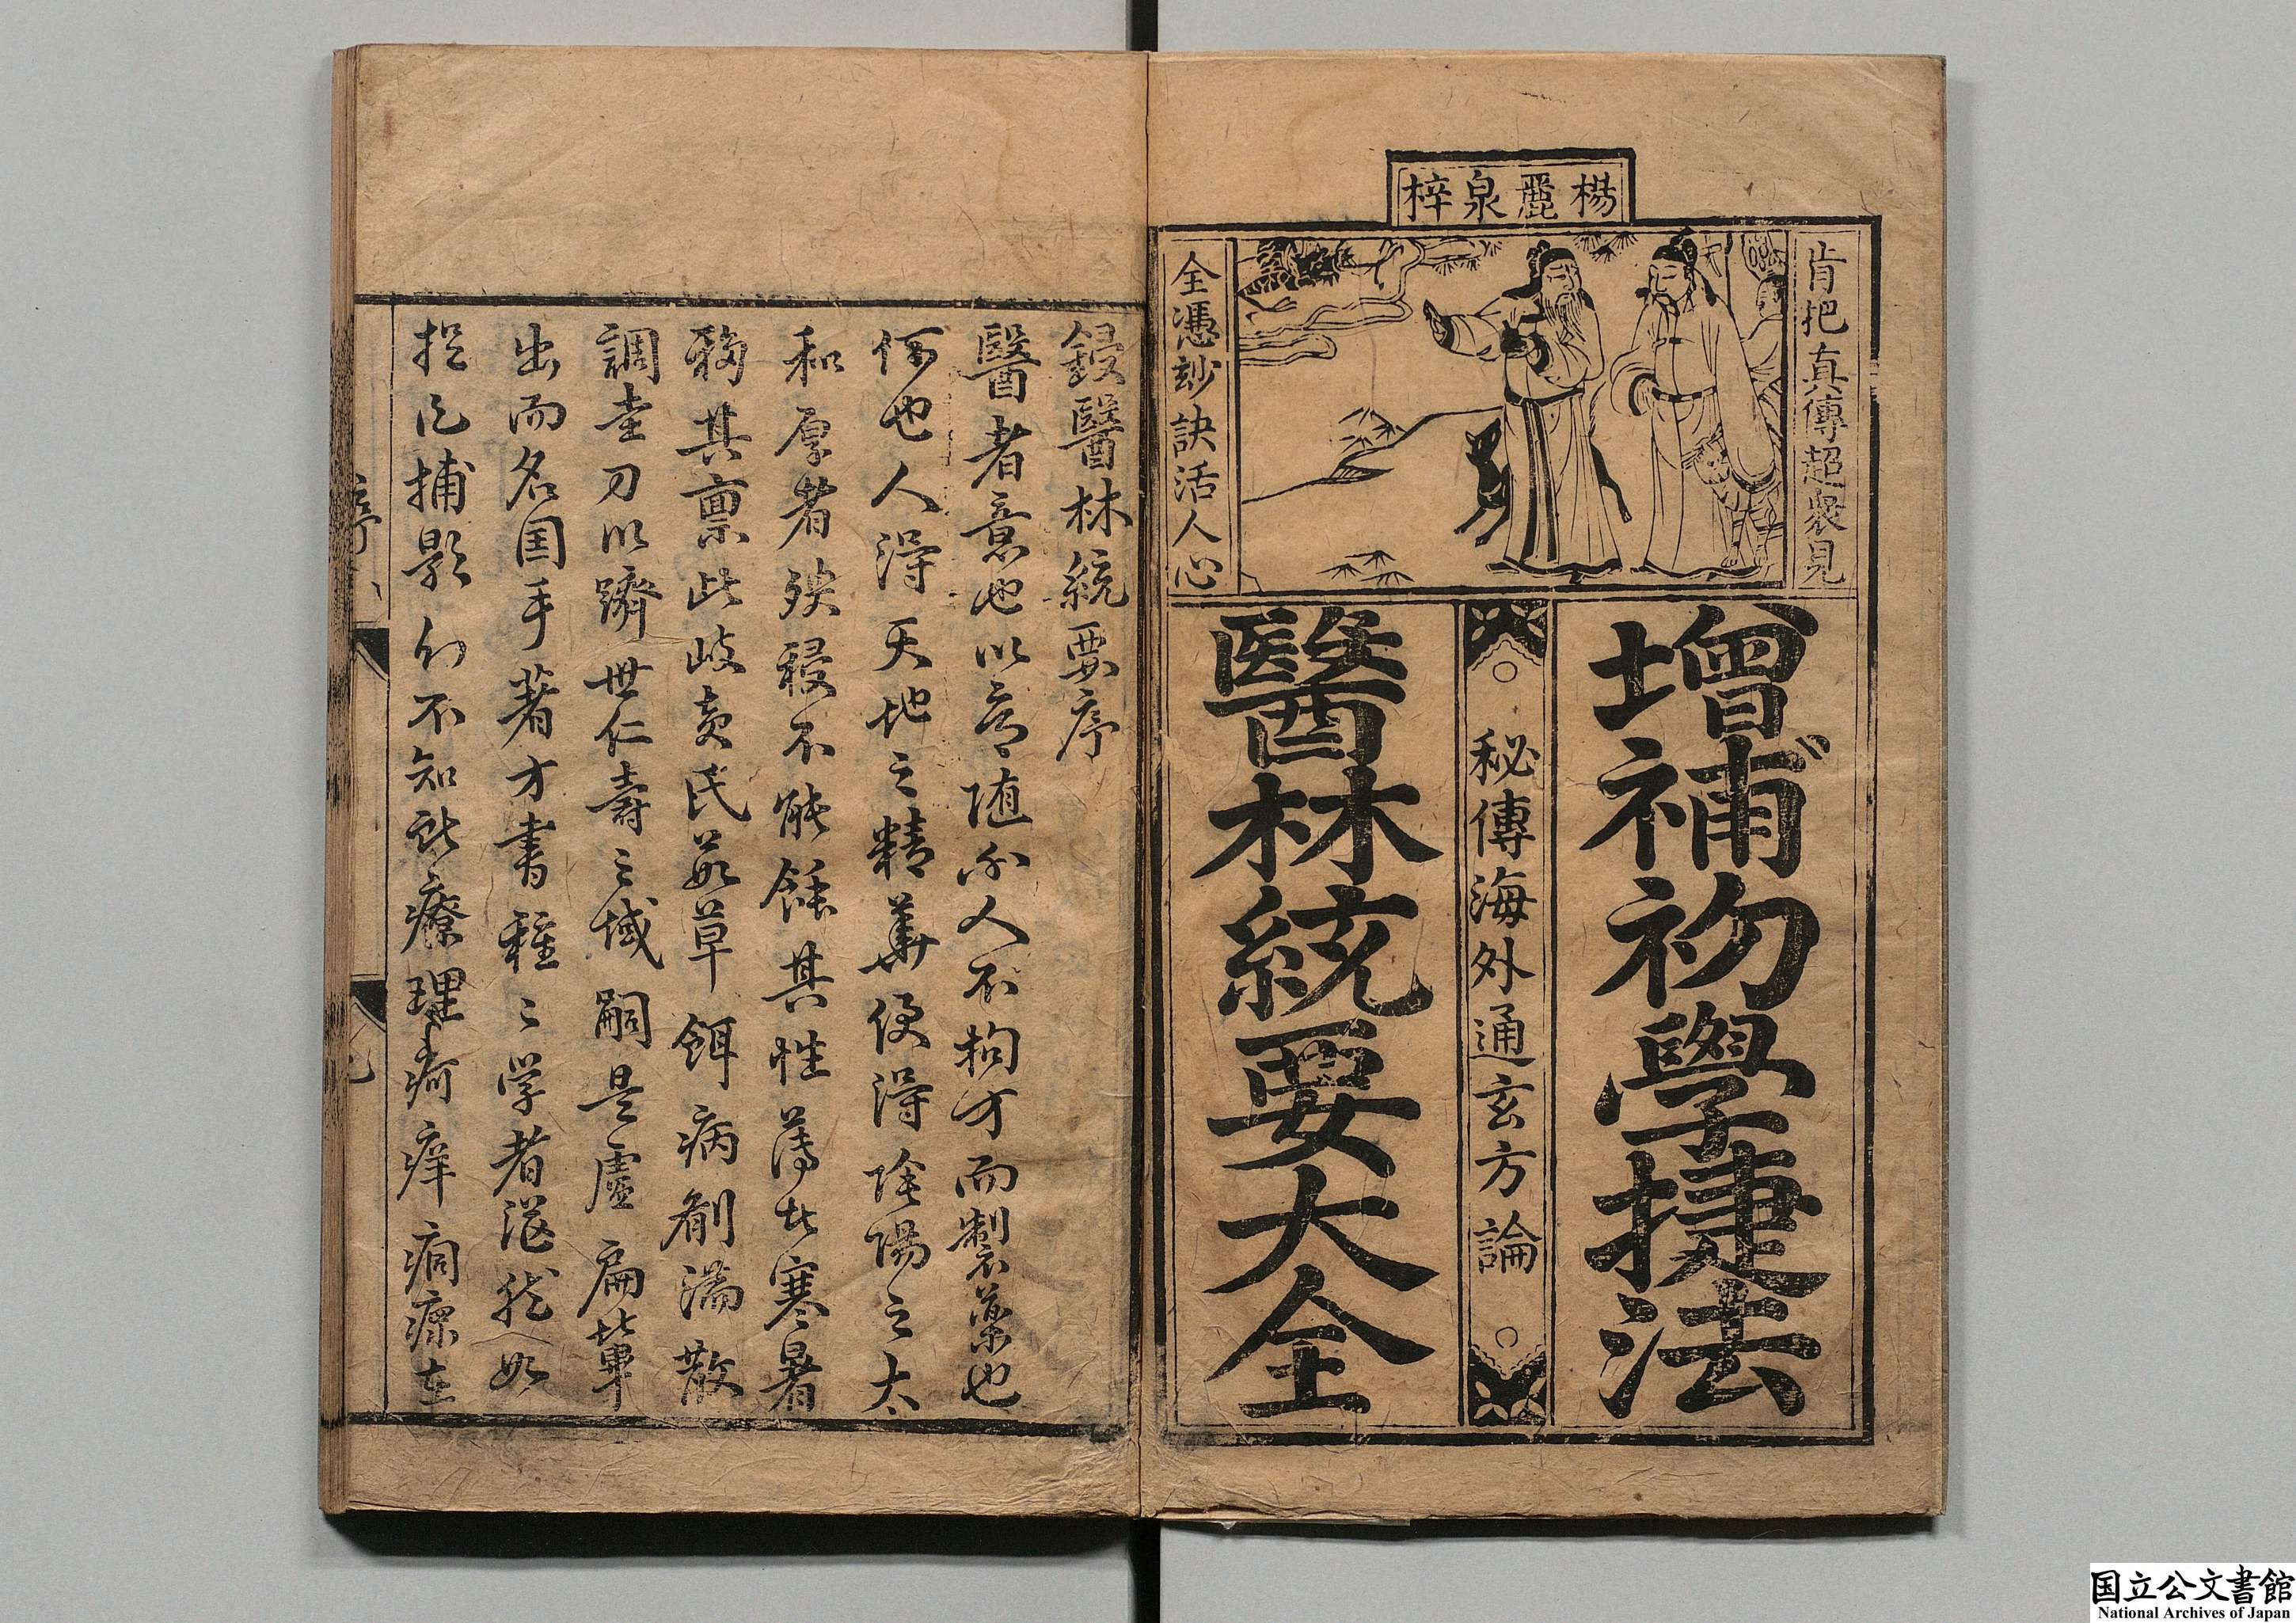 楊麗泉梓
肯把真傳超衆見
全憑玅訣活人心
增補初學捷法
○秘傳海外通玄方論○
醫林統要大全
鋟醫林統要序
醫者意也以意隨乎人不拘方而製藥也
何也人得天地之精華便得陰陽之太
和厚者殃祲不能餂其性薄者寒暑
移其禀此岐黄氏
草餌病劑湯散
調圭刀以躋世仁壽之域嗣是盧扁輩
出而名国手著方書種〻学者茫然如
捉
捕影
不知
療理疴痒痌瘝在
序
國立公文書館
National Archives of Japan